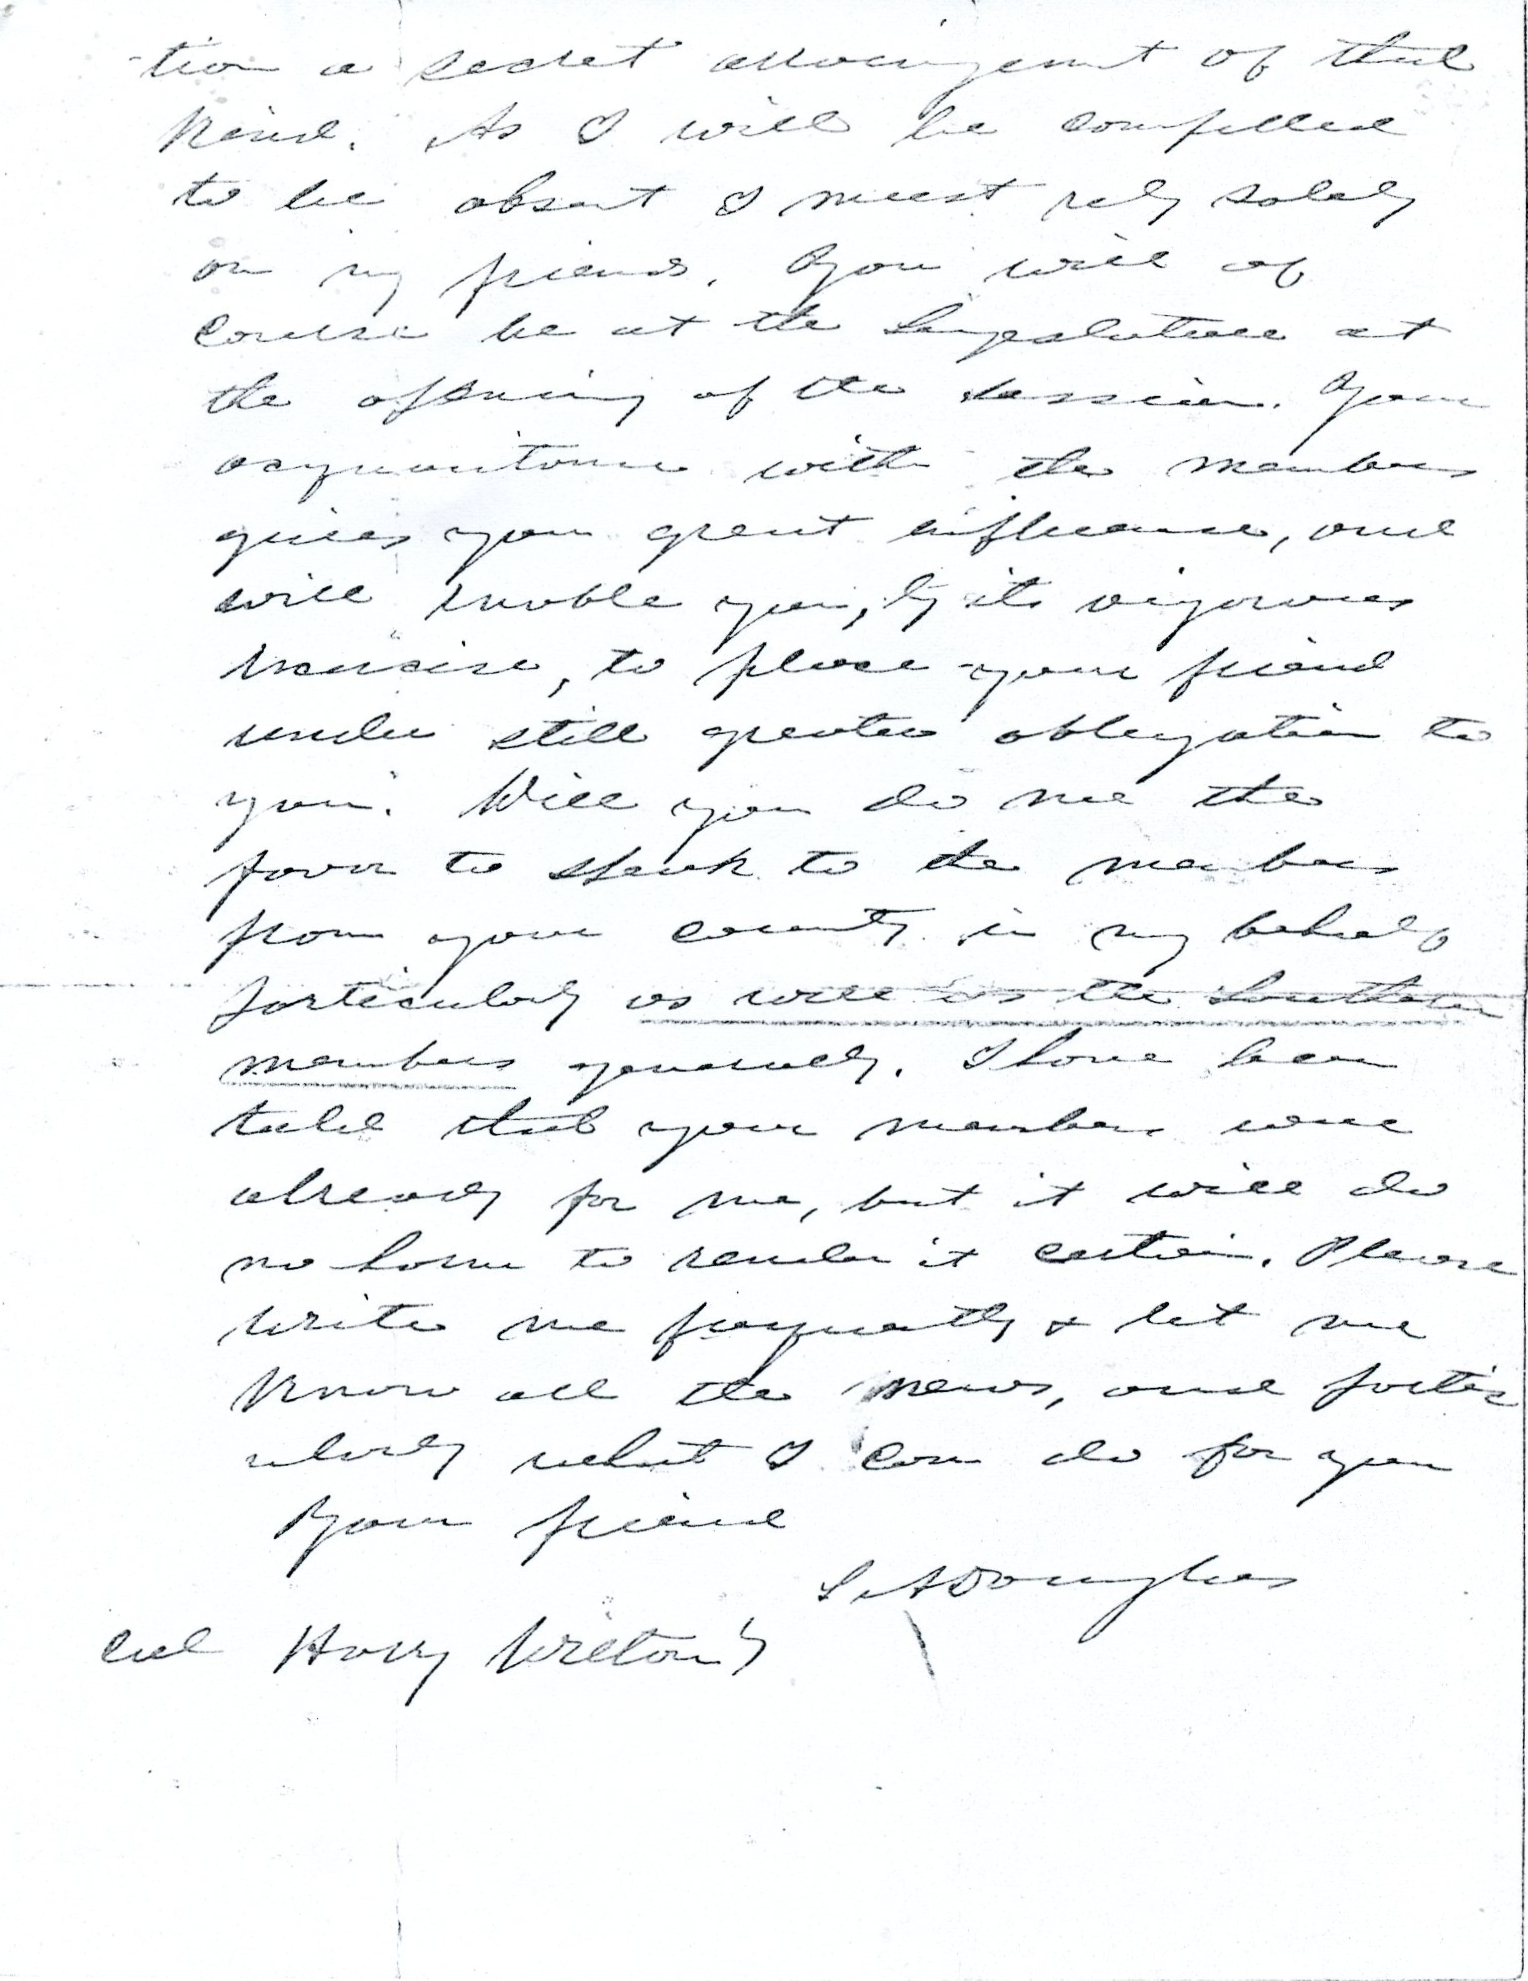 -tion a secret arrangement of that
kind. As I will be compelled
to be absent I must rely solely
on my friends. You will of
course be at the Legislature at
the opening of the session. Your
acquaintance with the members
gives you great influence, and
will enable you, by its vigorous
exercise, to place your friend
under still greater obligation to
you. Will you do me the
favor to speak to the members
from your county in my behalf
particularly as well as the Southern
members generally. I have been
told that your members were
already for me, but it will do
no harm to render it certain. Please
write me frequently & let me
know all the news, and partic
ularly what I can do for you
Your friend
S A Douglas
Col Harry Wilton